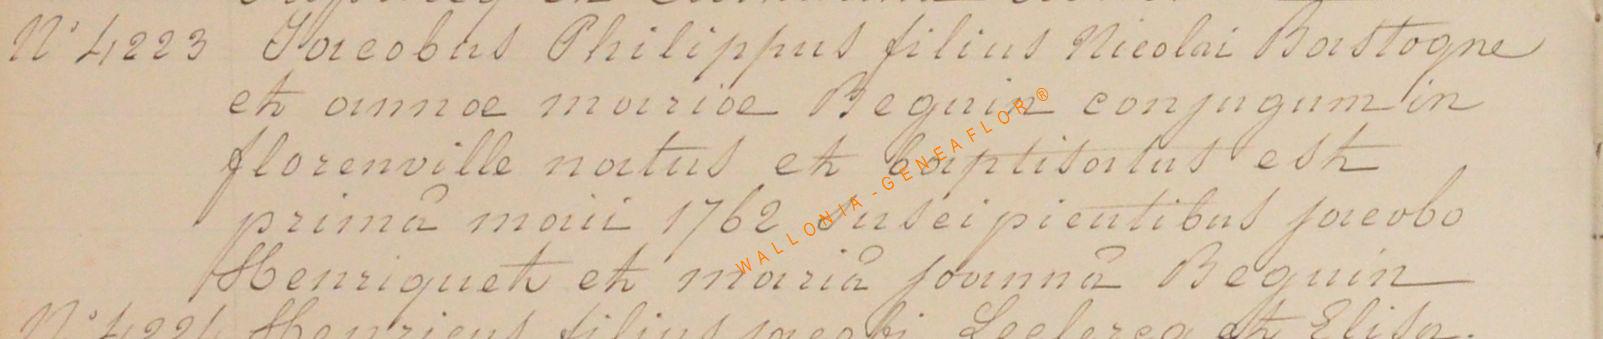 N° 4223 Jacobus Philippus filius Nicolai Bastogne
et annæ mariæ Beguin conjugum in
florenville natus et baptisatus est
primâ maii 1762 suscipientibus jacobo
Henriquet et mariâ joannâ Beguin
N° 4224 Henricus filius jacobi Leclercq et Elisa-
WALLONIA-GENEAFLOR®